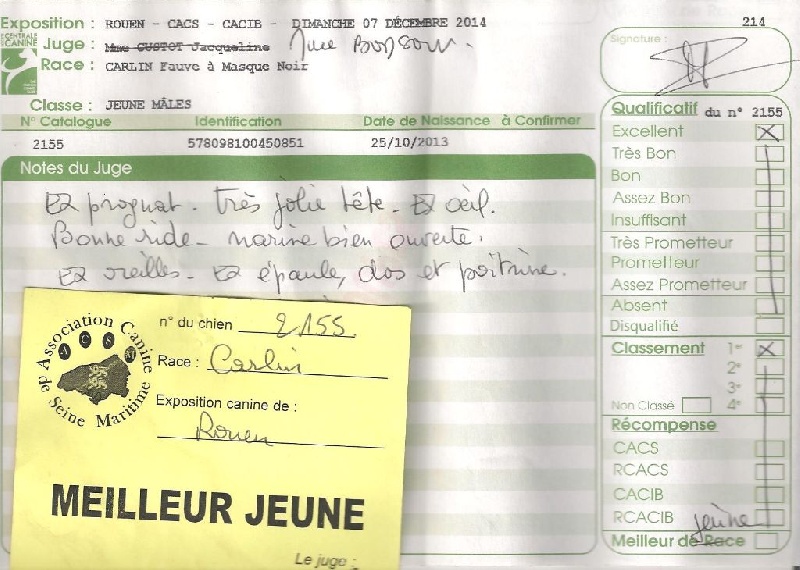 Exposition : ROUEN - CACS - CACIB - DIMANCHE 07 DÉCEMBRE 2014
214
CENTRALE CANINE
Juge : Mme GUSTOT Jacqueline Mme
Race : CARLIN Fauve à Masque Noir
Signature :
Classe : JEUNE MÂLES
N° Catalogue Identification Date de Naissance à Confirmer
2155 578098100450851 25/10/2013
Notes du Juge
Ex prognat. très jolie tête. Ex œil.
Bonne ride - narine bien ouverte.
Ex oreilles - Ex épaule, dos et poitrine.
Qualificatif du n° 2155
Excellent X
Très Bon
Bon
Assez Bon
Insuffisant
Très Prometteur
Prometteur
Assez Prometteur
Absent
Disqualifié
Classement 1er X
2e
3e
Non Classé 4e
Récompense
CACS
RCACS
CACIB
RCACIB
jeune
Meilleur de Race
Association Canine de Seine Maritime
ACSM
n° du chien 2155
Race : Carlin
Exposition canine de :
Rouen
MEILLEUR JEUNE
Le juge :